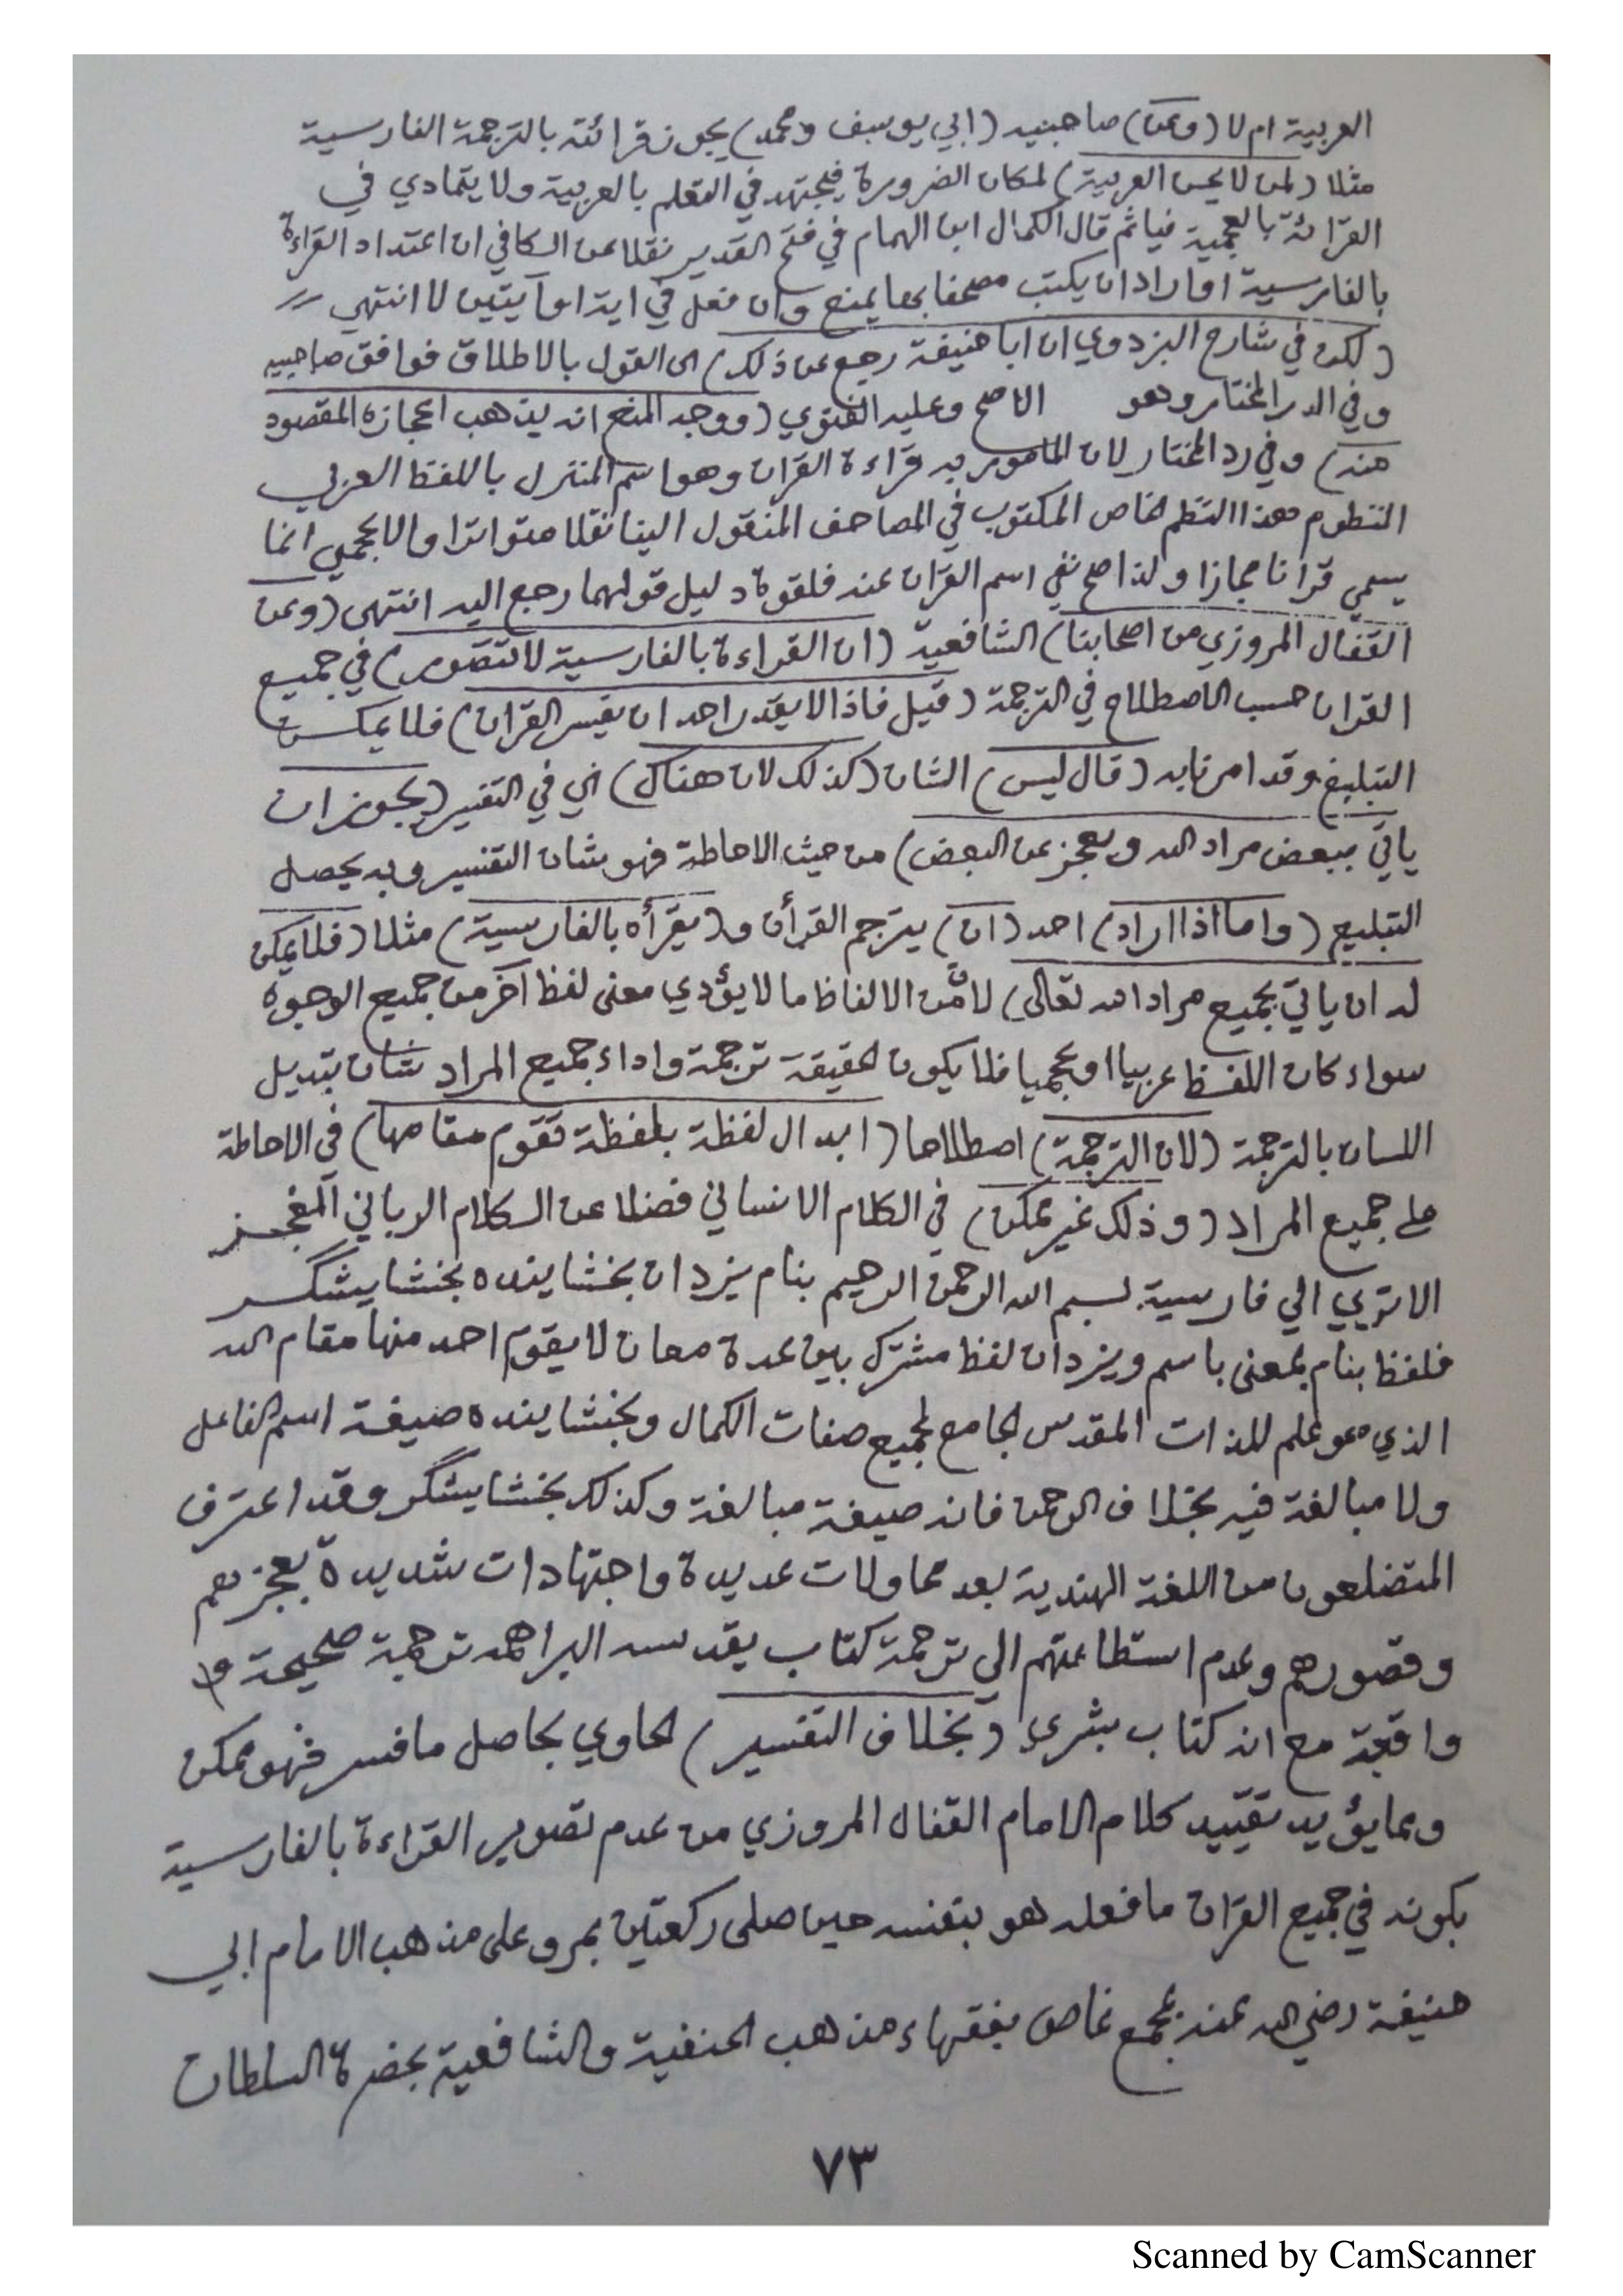 العربية ام لا (وعن) صاحبيه (ابي يوسف ومحمد) يجوز قرائته بالترجمة الفارسية
مثلا (لمن لا يحسن العربية) لمكان الضرورة فيجتهد في التعلم بالعربية ولا يتمادي في
القرائة بالعجمية فياثم قال الكمال ابن الهمام في فتح القدير نقلا عن الكافي ان اعتداد القراءة
بالفارسية او اراد ان يكتب مصحفا بها يمنع وان فعل في اية او آيتين لا انتهي
(لكن في شارح البزدوي ان ابا حنيفة رجع عن ذلك) الى القول بالاطلاق فوافق صاحبيه
وفي الدر المختار وهو الاصح وعليه الفتوي (ووجه المنع انه يذهب اعجازه المقصود
منه) وفي رد المختار لان المامور به قراءة القران وهو اسم المنزل باللفظ العربي
المنظوم هذا النظم الخاص المكتوب في المصاحف المنقول الينا نقلا متواترا والاعجمي انما
يسمي قرانا مجازا ولذا صح نفي اسم القران عنه فلقوة دليل قولهما رجع اليه انتهى (وعن
القفال المروزي من اصحابنا) الشافعية (ان القراءة بالفارسية لا تتصور) في جميع
القران حسب الاصطلاح في الترجمة (قيل فاذا لا يقدر احد ان يفسر القران) فلا يمكن
التبليغ وقد امرنا به (قال ليس) الشان (كذلك لان هناك) اي في التفسير (يجوز ان
ياتي ببعض مراد الله ويعجز عن البعض) من حيث الاحاطة فهو شان التفسير وبه يحصل
التبليع (واما اذا اراد) احد (ان) يترجم القرأن و(يقرأه بالفارسية) مثلا (فلا يمكن
له ان ياتي بجميع مراد الله تعالى) لانّ من الالفاظ ما لا يؤدي معنى لفظ آخر من جميع الوجوه
سواء كان اللفظ عربيا او عجميا فلا يكون الحقيقة ترجمة واداء جميع المراد شان تبديل
اللسان بالترجمة (لان الترجمة) اصطلاحا (ابدال لفظة بلفظة تقوم مقامها) في الاحاطة
على جميع المراد (وذلك غير ممكن) في الكلام الانساني فضلا عن الكلام الرباني المعجز
الا تري الي فارسية بسم الله الرحمن الرحيم بنام يزدان بخشاينده بخشايشگر
فلفظ بنام بمعنى باسم ويزدان لفظ مشترك بين عدة معان لا يقوم احد منها مقام الله
الذي هو علم للذات المقدس الجامع لجميع صفات الكمال وبخشاينده صيغة اسم الفاعل
ولا مبالغة فيه بخلاف الرحمن فانه صيغة مبالغة وكذلك بخشايشگر وقد اعترف
المتضلعون من اللغة الهندية بعد محاولات عديدة واجتهادات شديدة بعجزهم
وقصورهم وعدم استطاعتهم الي ترجمة كتاب يقدسه البراهمه ترجمة صحيحة و
واقعة مع انه كتاب بشري (بخلاف التفسير) الحاوي بحاصل ما فسر فهو ممكن
ومما يؤيد تقييد كلام الامام القفال المروزي من عدم تصوير القراءة بالفارسية
بكونه في جميع القران ما فعله هو بنفسه حين صلى ركعتين بمرو على مذهب الامام ابي
حنيفة رضي الله عنه بمجمع غاص بفقهاء مذهب الحنفية والشافعية بحضرة السلطان
٧٣
Scanned by CamScanner